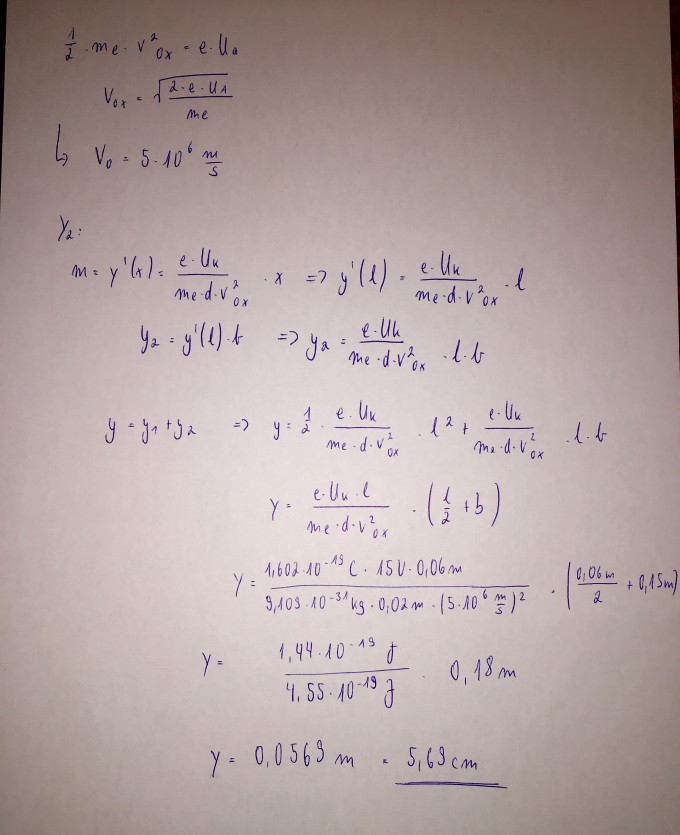 1/2 · me · v²ox = e · Ua
Vox = √(2 · e · UA / me)
↳ Vo = 5 · 10⁶ m/s
Y₂:
m = y'(x) = e · Uk / me · d · v²ox · x => y'(l) = e · Uk / me · d · v²ox · l
y₂ = y'(l) · b => y₂ = e · Uk / me · d · v²ox · l · b
y = y₁ + y₂ => y = 1/2 · e · Uk / me · d · v²ox · l² + e · Uk / me · d · v²ox · l · b
Y = e · Uk · l / me · d · v²ox · (l/2 + b)
Y = 1,602 · 10⁻¹⁹ C · 15V · 0,06m / 9,109 · 10⁻³¹ kg · 0,02m · (5 · 10⁶ m/s)² · (0,06m/2 + 0,15m)
Y = 1,44 · 10⁻¹⁹ J / 4,55 · 10⁻¹⁹ J · 0,18m
Y = 0,0569 m = 5,69 cm